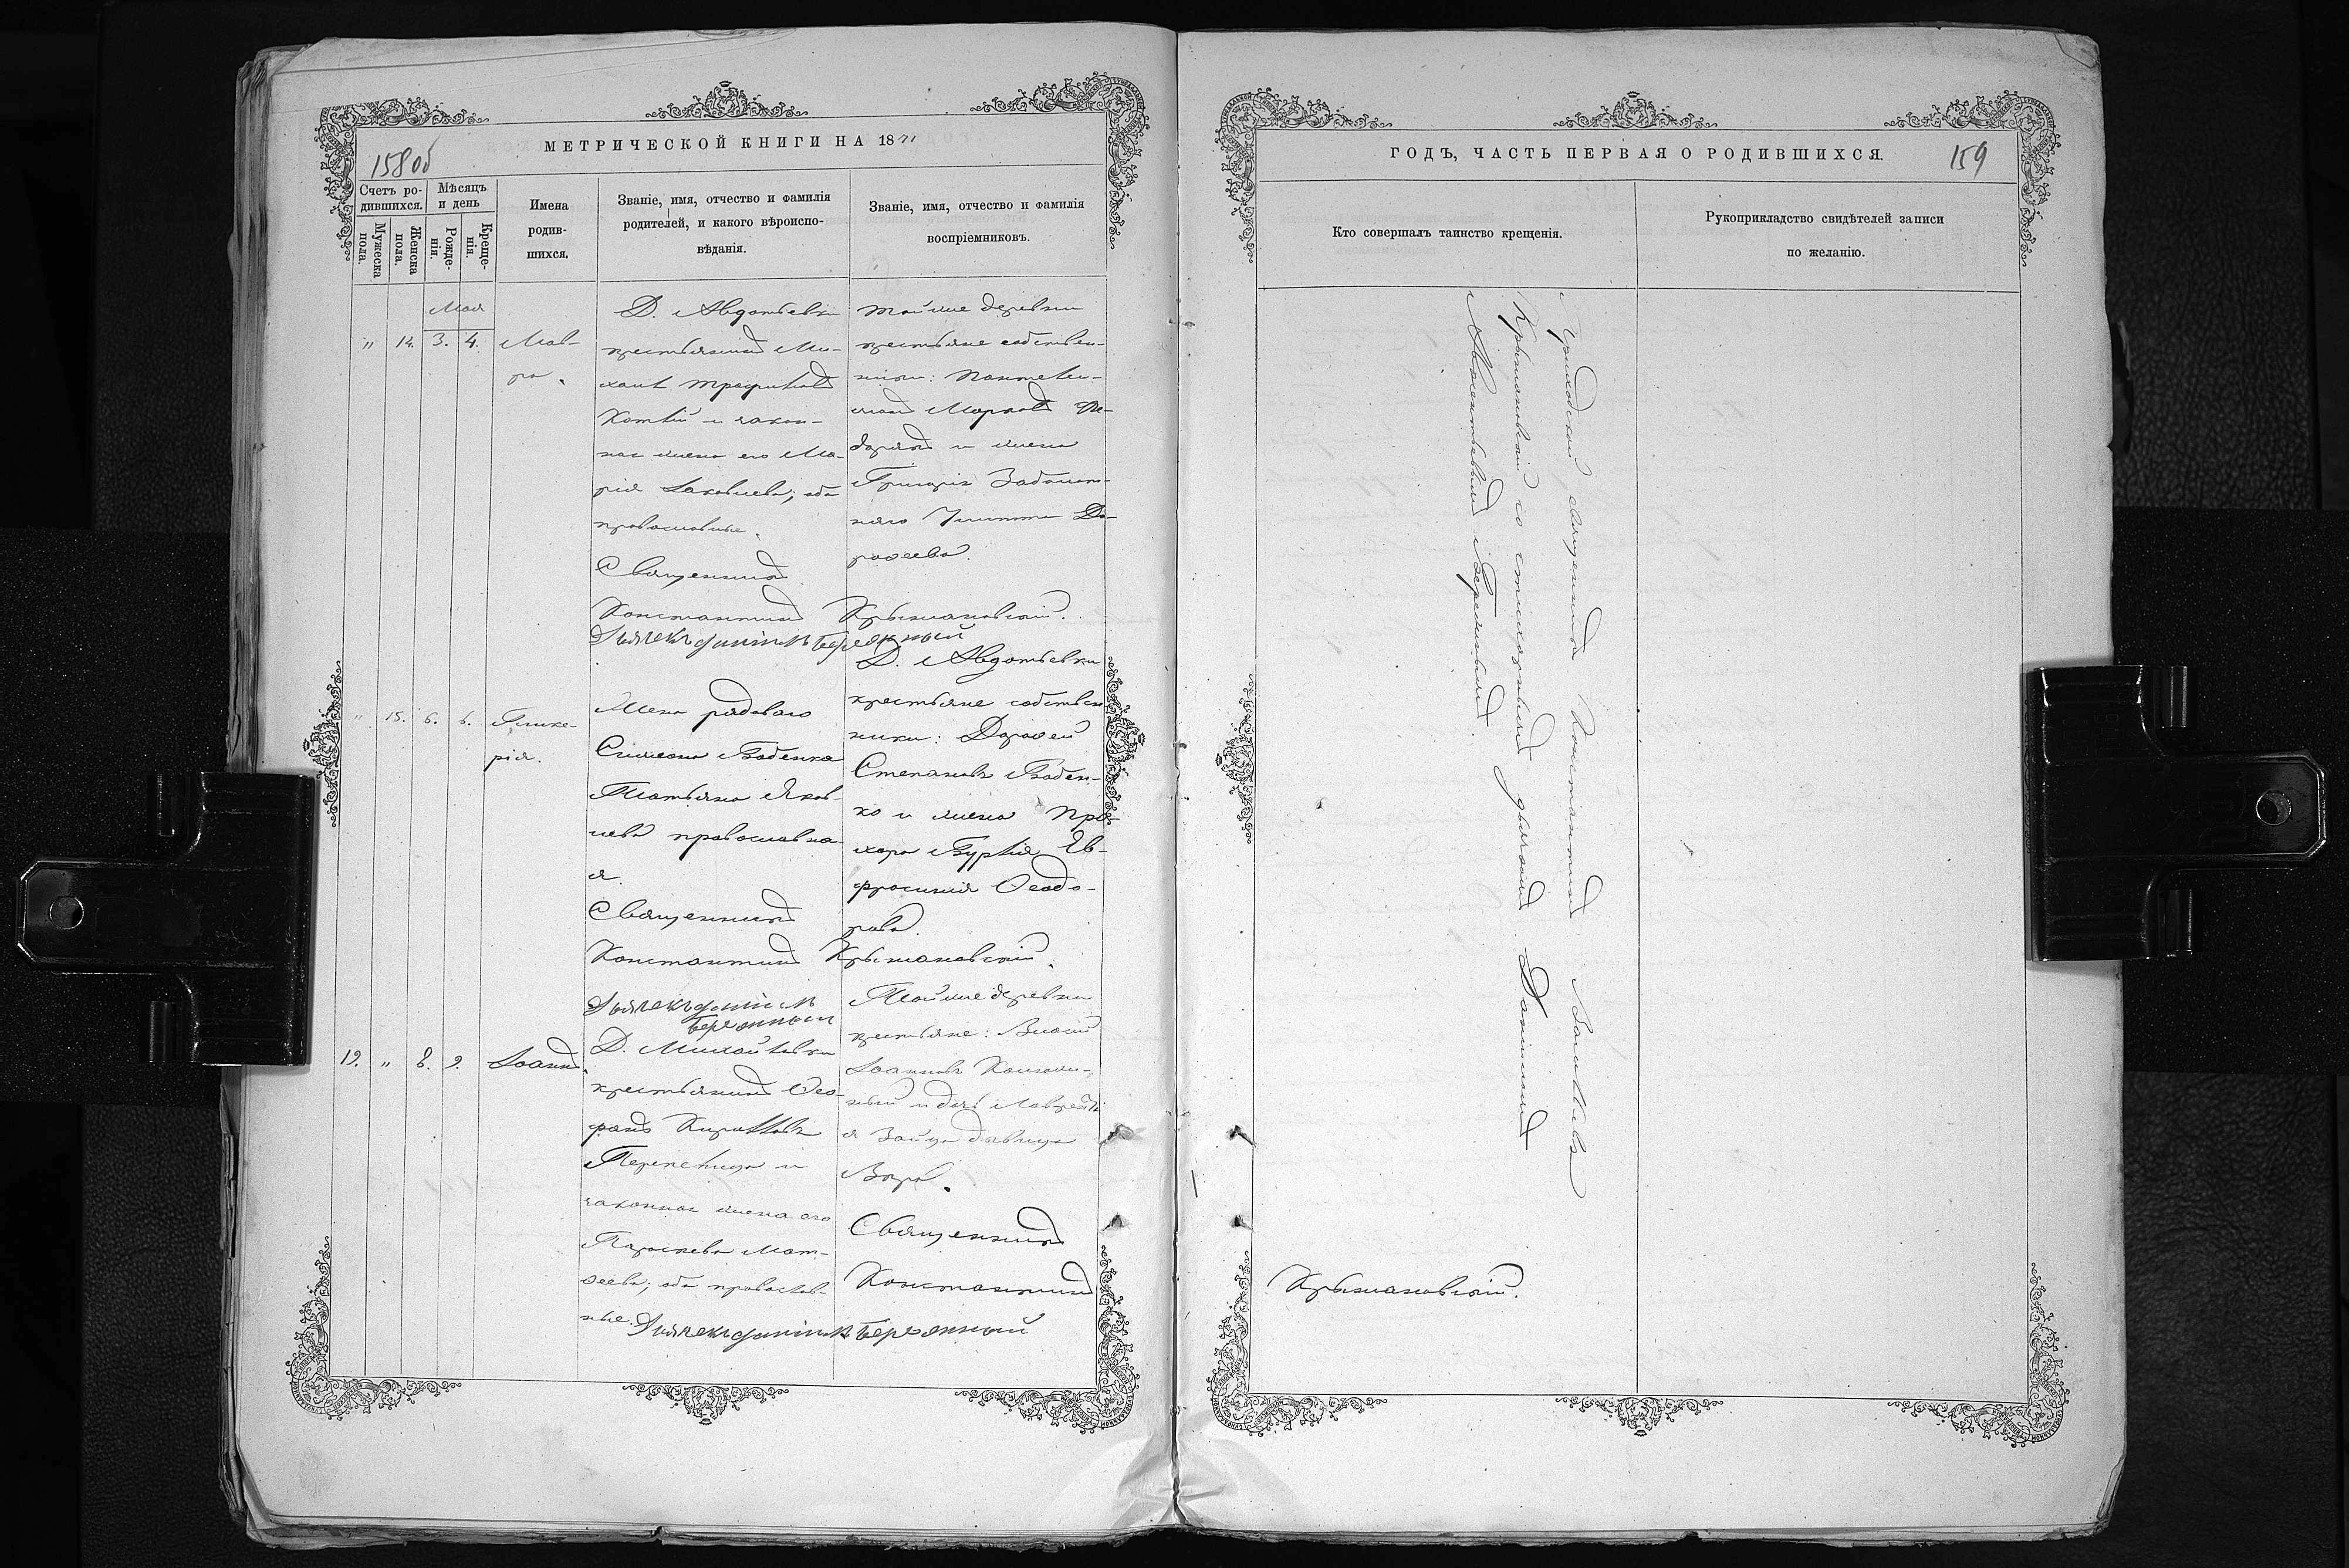 МЕТРИЧЕСКОЙ КНИГИ НА 1871
158об
Счетъ ро-
дившихся.
Мужеска
пола.
Женска
пола.
Мѣсяцъ
и день
Рожде-
нія.
Креще-
нія.
Имена
родив-
шихся.
Званіе, имя, отчество и фамилія
родителей, и какого вѣроиспо-
вѣданія.
Званіе, имя, отчество и фамилія
воспріемниковъ.
Мая
" 14. 3. 4.
Мав-
ра.
Д. Авдотьевки
крестьянинъ Ми-
хаилъ Трофимовъ
и закон-
ная жена его Ма-
рія Іаковлева; оба
православные.
Священникъ
Константинъ Крыжановскій.
Дьячекъ Даніилъ
той же деревни
крестьяне собствен-
ники: Пантелеи-
монъ Марковъ
и жена
Григорія Заболот-
няго До-
роѳеева.
" 15. 6. 6.
Глике-
рія.
Жена рядоваго
Симеона Бабенка
Татьяна Яков-
лева православна-
я.
Священникъ
Константинъ Крыжановскій.
Дьячекъ Даніилъ
Д. Авдотьевки
крестьяне собствен
ники: Дороѳей
Степановъ Бабен-
ко и жена Про-
хора Ев-
фросинія Ѳеодо-
рова.
19. " 8. 9.
Іоаннъ.
Д. Михайловки
крестьянинъ Ѳео-
Кирилловъ
Перепелица и
законная жена его
Параскева Мат-
ѳеева; оба православ-
ные.
Той же деревни
крестьяне: Власій
Іоанновъ
и дочь Лаврентi
я Зайца дѣвица
Вара.
Священникъ
Константинъ
Дьячекъ Даніилъ
ГОДЪ, ЧАСТЬ ПЕРВАЯ О РОДИВШИХСЯ.
159
Кто совершалъ таинство крещенія.
Рукоприкладство свидѣтелей записи
по желанію.
Приходскій священникъ Константинъ
Крыжановскій съ дьячкомъ Даніиломъ
Крыжановскій.